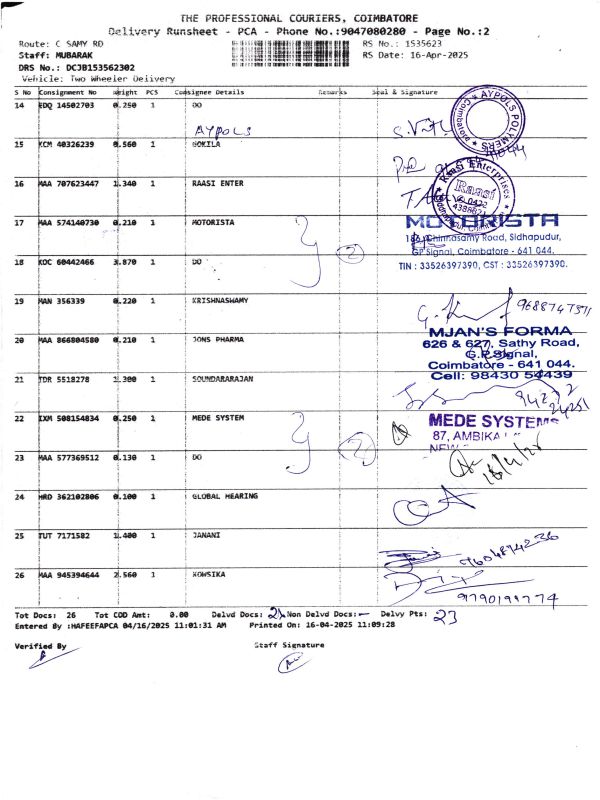 THE PROFESSIONAL COURIERS, COIMBATORE
Delivery Runsheet - PCA - Phone No.:9047080280 - Page No.:2
Route: C SAMY RD RS No.: 1535623
Staff: MUBARAK RS Date: 16-Apr-2025
DRS No.: DCJB153562302
Vehicle: Two Wheeler Delivery
S No Consignment No Weight PCS Consignee Details Remarks Seal & Signature
14 EDQ 14502703 0.250 1 DO
AYPOLS
AYPOLS POLYMERS
15 KCM 40326239 0.560 1 GOKILA
16 MAA 707623447 1.340 1 RAASI ENTER
Raasi Enterprises
Raasi
17 MAA 574140730 0.210 1 MOTORISTA
MOTORISTA
Chinnasamy Road, Sidhapudur,
GP Signal, Coimbatore - 641 044.
18 KOC 60442466 3.870 1 DO
2
TIN : 33526397390, CST : 33526397390.
19 MAN 356339 0.220 1 KRISHNASWAMY
MJAN'S FORMA
20 MAA 866804580 0.210 1 JONS PHARMA
626 & 627, Sathy Road,
G.P.Signal,
Coimbatore - 641 044.
Cell: 98430 54439
21 TDR 5518278 1.300 1 SOUNDARARAJAN
22 IXM 508154834 0.250 1 MEDE SYSTEM
MEDE SYSTEMS
87, AMBIKA
2
23 MAA 577369512 0.130 1 DO
24 HRD 362102806 0.100 1 GLOBAL HEARING
25 TUT 7171582 1.400 1 JANANI
26 MAA 945394644 2.560 1 HOWSIKA
9790199774
Tot Docs: 26 Tot COD Amt: 0.00 Delvd Docs: Non Delvd Docs: Delvy Pts: 23
Entered By :HAFEEFAPCA 04/16/2025 11:01:31 AM Printed On: 16-04-2025 11:09:28
Verified By Staff Signature